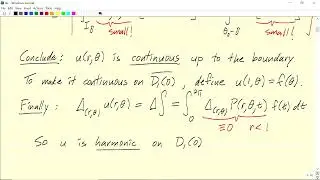 I_δ small! θ_0-δ small!
Conclude: u(r,θ) is continuous up to the boundary.
To make it continuous on D_1(0), define u(1,θ)=f(θ).
Finally: Δ_(r,θ) u(r,θ) = Δ∫ = ∫_0^2π Δ_(r,θ) P(r,θ,t) f(t) dt
≡0 r<1
So u is harmonic on D_1(0)